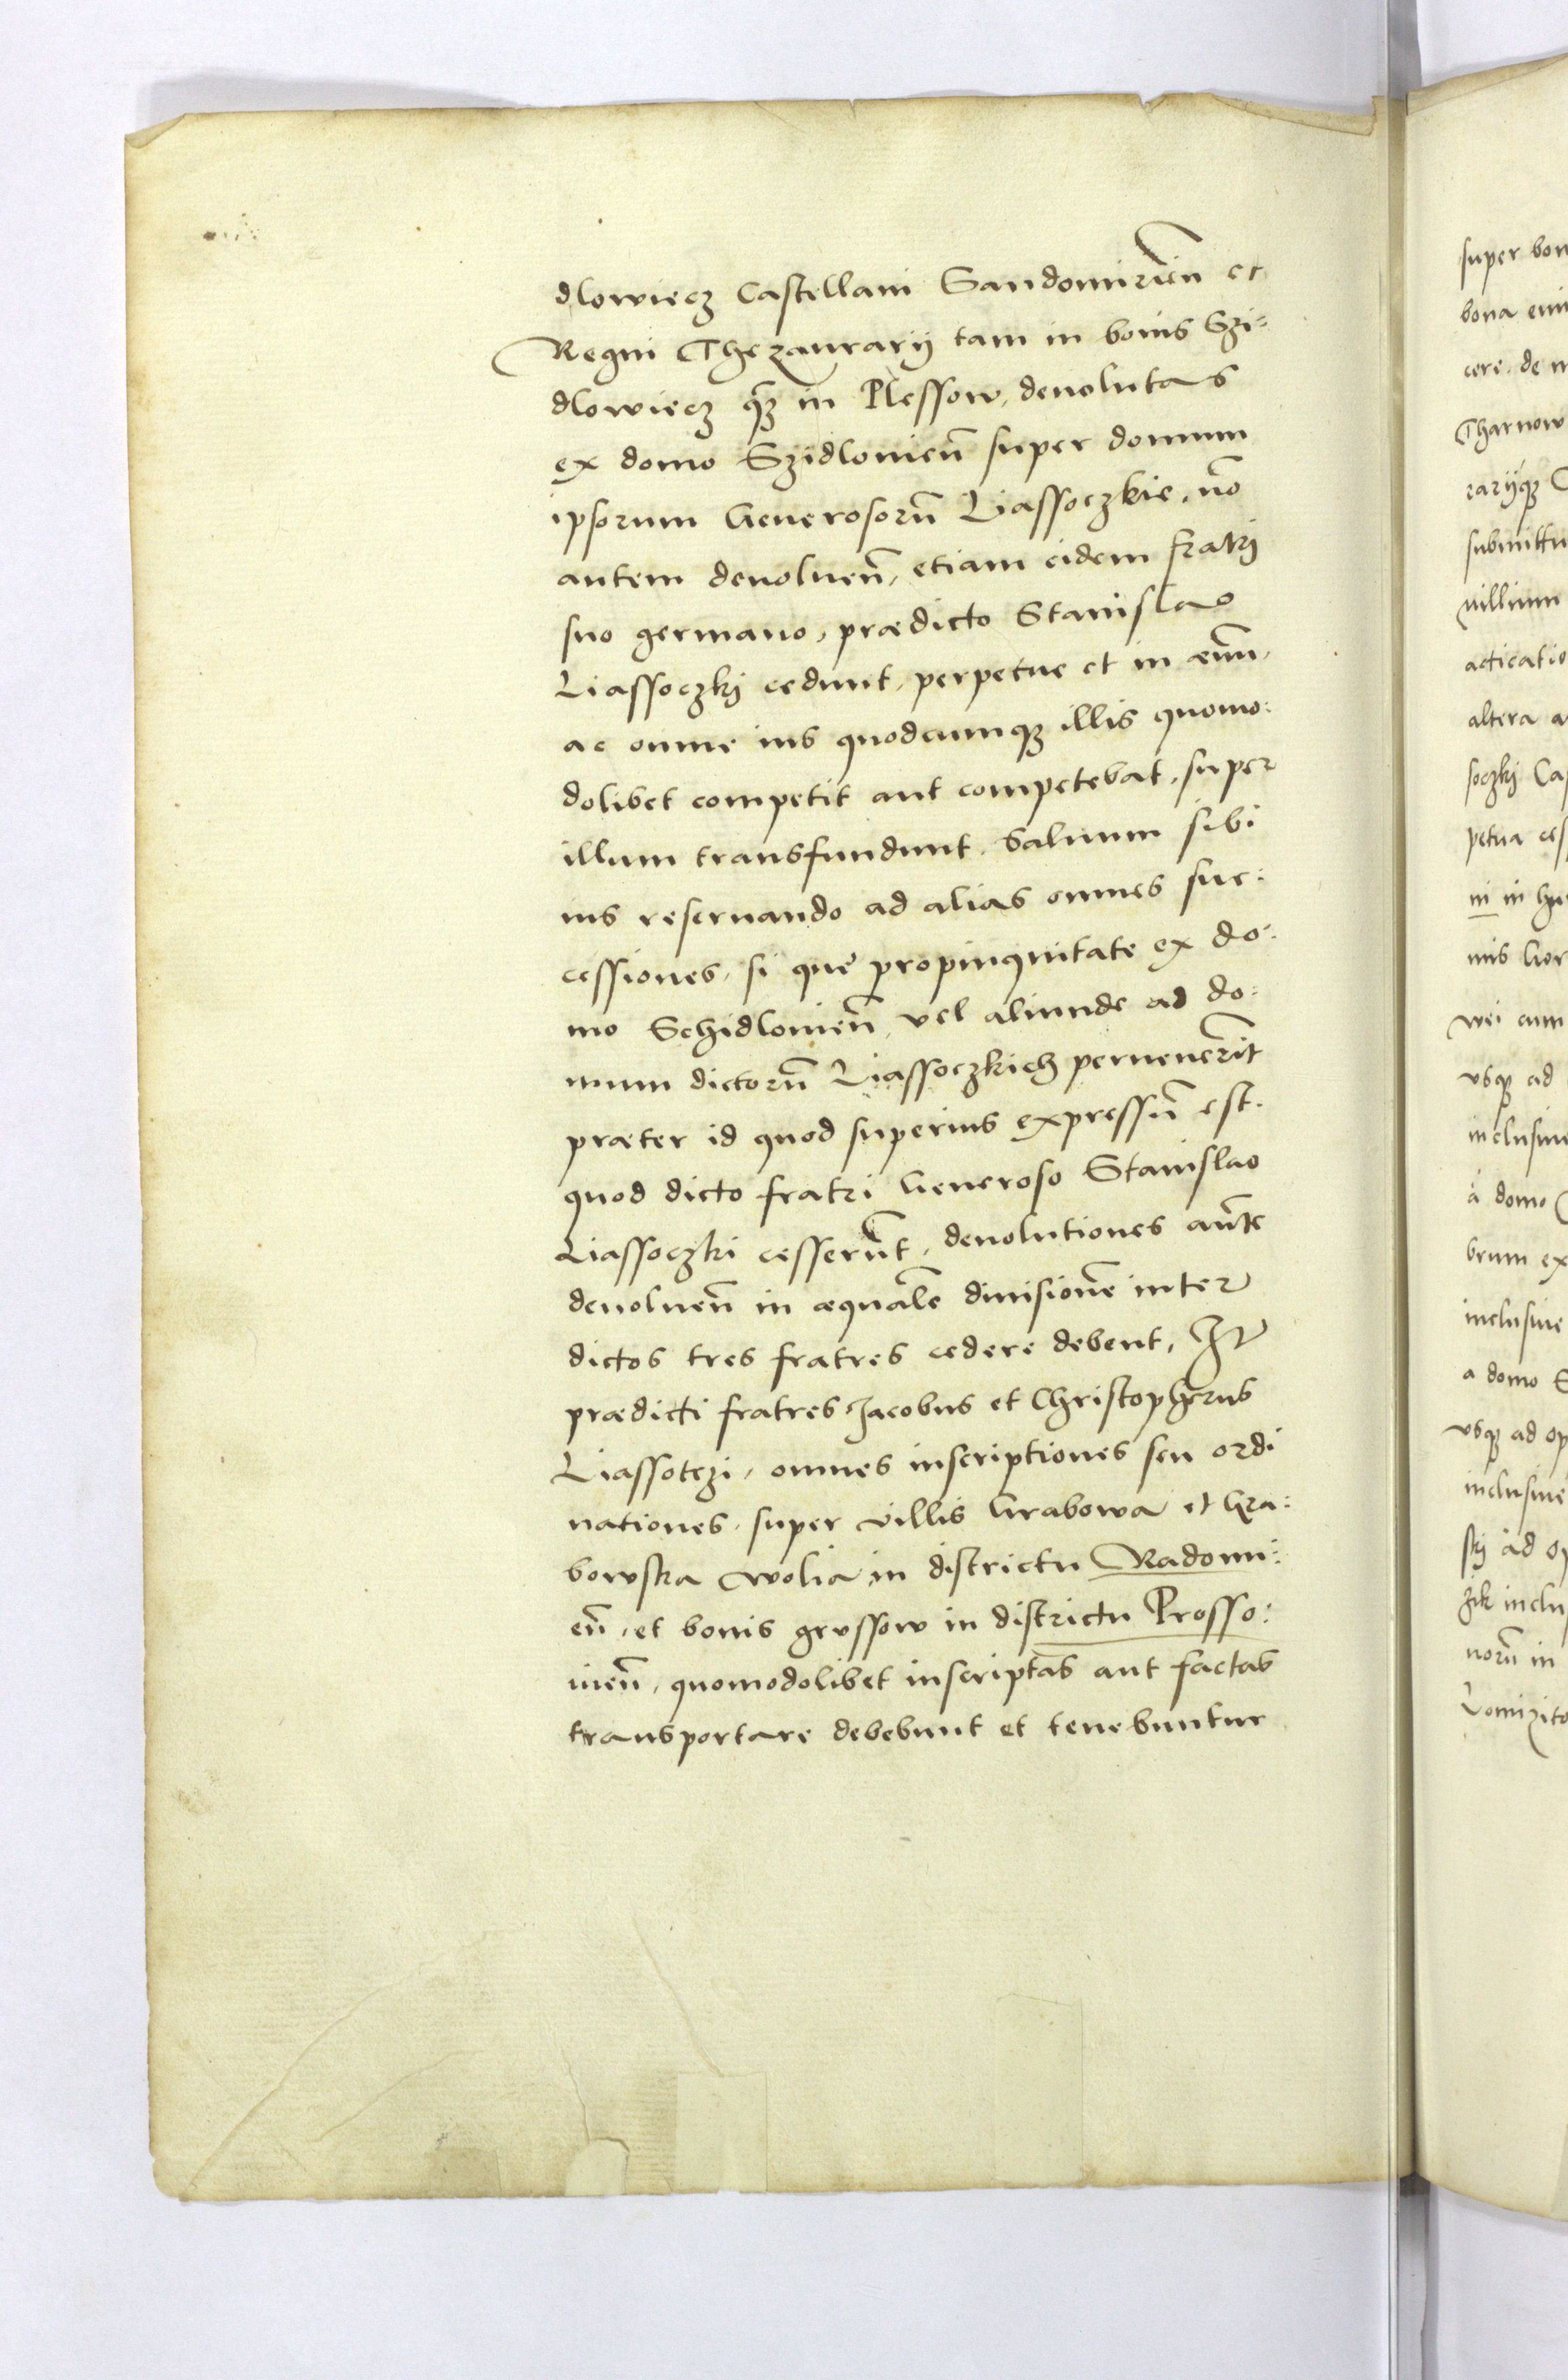 dlowiecz Castellani Sandomirien̄ et
Regni Thezaurarij tam in bonis Szi=
dlowiecz qꝫ in Plessow, deuolutas
ex domo Szidlouien̄ super domum
ipsorum Generosorū Liassoczkie, nō
autem deuoluen̄, etiam eidem fratrj
suo germano, prædicto Stanislao
Liassoczkj cedunt, perpetue et in æuū,
ac omne ius quodcumqꝫ illis quomo:
dolibet competit aut competebat, super
illum transfundunt. Saluum sibi
ius reseruando ad alias omnes suc:
cessiones, si que propinquitate ex do:
mo Schidlouien̄ vel aliunde ad do:
mum dictorū Liassoczkich peruenerīt
præter id quod superius expressū est.
quod dicto fratri Generoso Stanislao
Liassoczki cesserūt, deuolutiones aūte
deuoluen̄ in æqualē diuisionē inter
dictos tres fratres cedere debent, It̄
prædicti fratres Jacobus et Christopherus
Liassotczi, omnes inscriptiones seu ordi
nationes, super villis Grabowa et Gra:
bowska wolia in districtu Radomi:
en̄, et bonis grussow in districtu Prosso:
uien̄, quomodolibet inscriptas aut factas
transportare debebunt et tenebuntur
super
bona
cere. de
Tharnow
rarijqꝫ
villium
altera
soczkj
petua
in
wei cum
vsqꝫ ad
inclusiue
à domo
brum ex
inclusiue
a domo
vsqꝫ ad
inclusiue
skj ad
zik
norū in